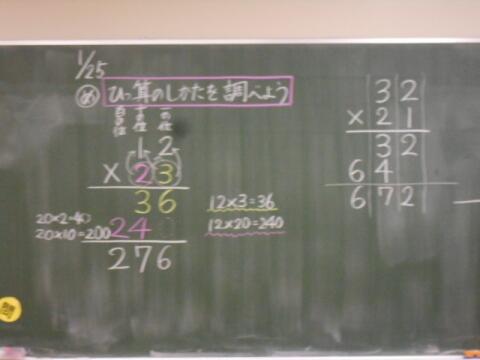 1/25
め ひっ算のしかたを調べよう
百の位 十の位 一の位
12
×23
36
20×2=40
20×10=200 24
276
12×3=36
12×20=240
32
×21
32
64
672